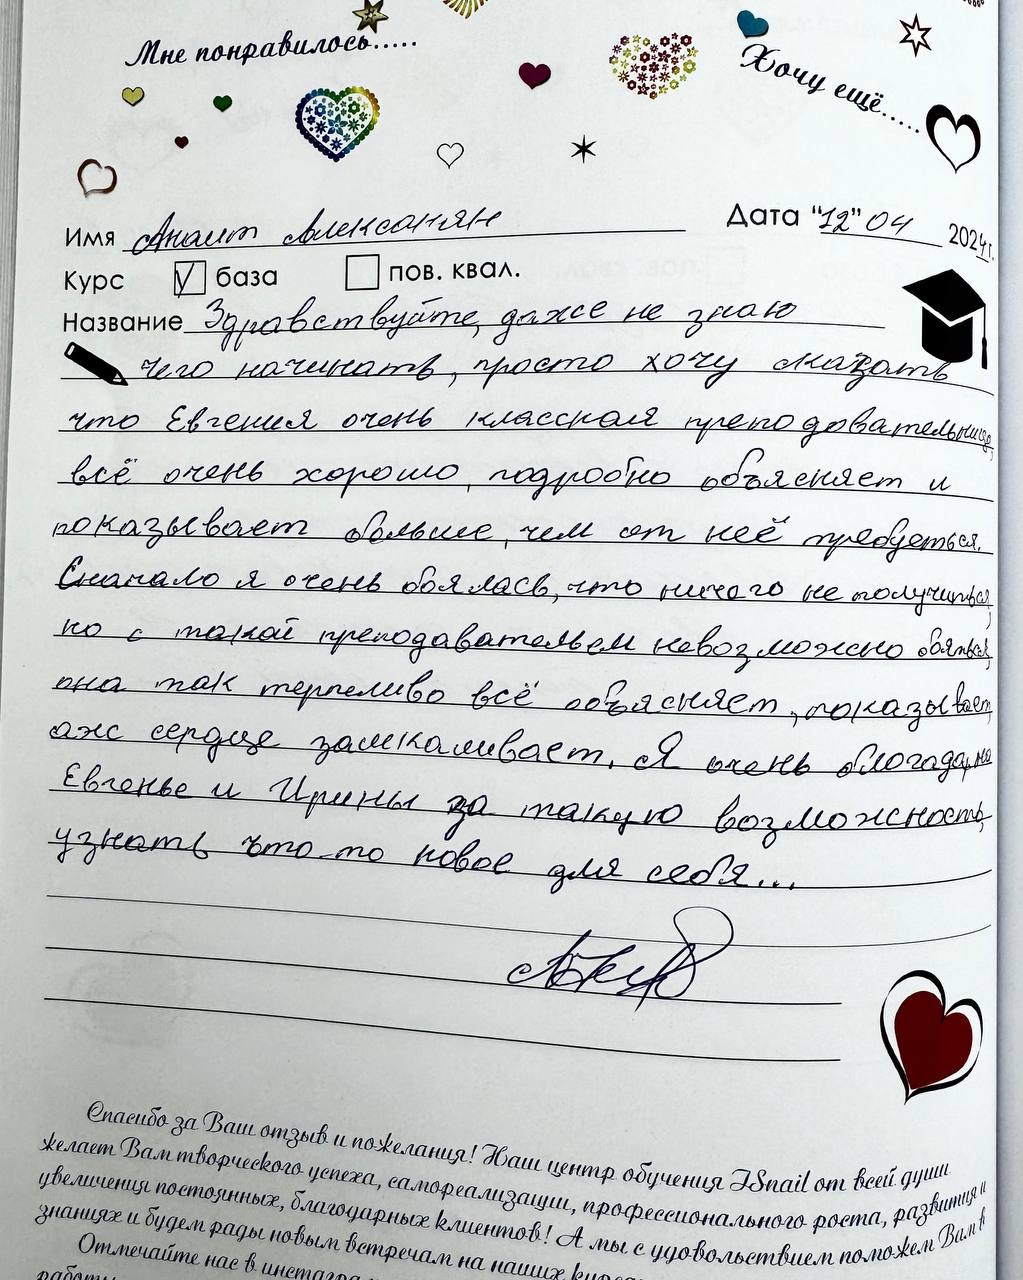 Мне понравилось.....
Хочу ещё.....
Имя Анаит Алексанян
Дата "12" 04 2024г.
Курс ☑ база ☐ пов. квал.
Название Здравствуйте, даже не знаю
чего начинать, просто хочу сказать
что Евгения очень классная преподовательница,
всё очень хорошо, подробно объясняет и
показывает больше, чем от неё требуеться.
Сначало я очень боялась, что ничего не получиться,
но с такой преподавательем невозможно бояться,
она так терпеливо всё объясняет, показывает,
аж сердце замкаливает. Я очень благодарна
Евгенье и Ирины за такую возможность,
узнать что-то новое для себя...
Спасибо за Ваш отзыв и пожелания! Наш центр обучения ISnail от всей души
желает Вам творческого успеха, самореализации, профессионального роста, развития и
увеличения постоянных, благодарных клиентов! А мы с удовольствием поможем Вам в
знаниях и будем рады новым встречам на наших
Отмечайте нас в